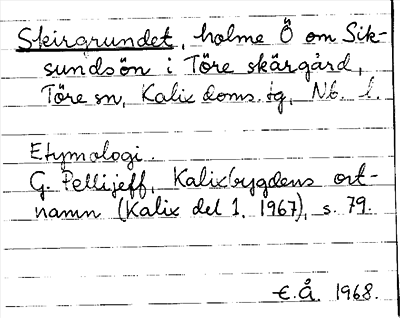 Skirgrundet, holme Ö om Sik-
sundsön i Töre skärgård,
Töre sn, Kalix doms.tg, Nb. l.
Etymologi.
G. Pellijeff, Kalixbygdens ort-
namn (Kalix del 1, 1967), s. 79.
E.Å. 1968.